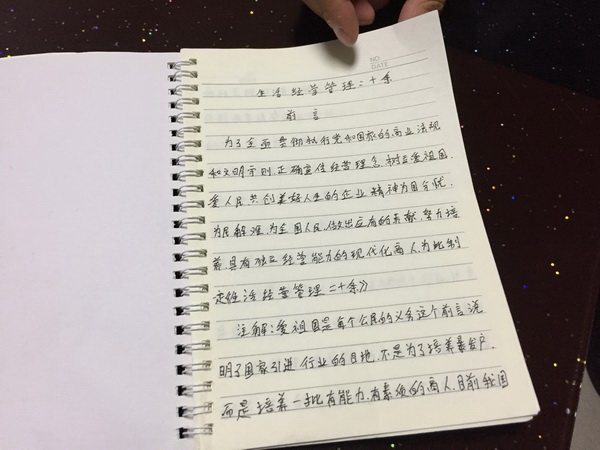 NO.
DATE
生活经营管理二十条
前言
为了全面贯彻执行党和国家的商业法规
和文明守则,正确宣传经营理念,树立爱祖国.
爱人民共创美好人生的企业精神为国分忧.
为民解难,为全国人民做出应有的贡献,努力培
养,具有独立经营能力的现代化商人,为此制
定《生活经营管理二十条》
注解:爱祖国是每个公民的义务这个前言说
明了国家引进行业的目地,不是为了培养暴发户.
而是培养一批有能力,有素质的商人,目前我国